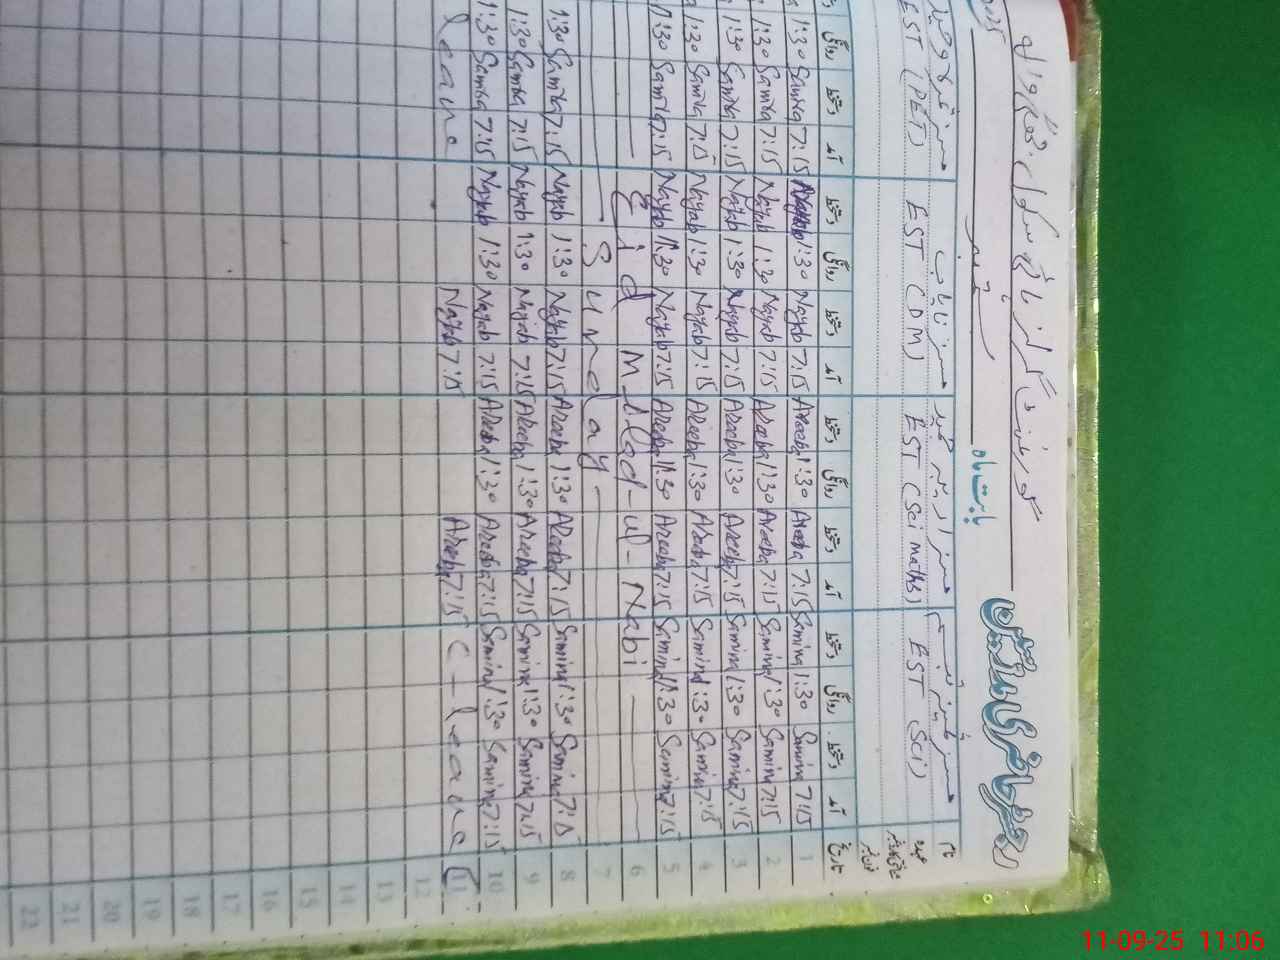 رجسٹر حاضری مدرسین
گورنمنٹ گرلز ہائی سکول
بابت ماہ ستمبر 2025
نام
عہدہ
EST (Sci) EST (Sci maths) EST (DM) EST (PET)
تاریخ آمد دستخط روانگی دستخط آمد دستخط روانگی دستخط آمد دستخط روانگی دستخط آمد دستخط روانگی
1 7:15 Samina 1:30 Samina 7:15 Areeba 1:30 Areeba 7:15 Nayab 1:30 Nayab 7:15 Samra 1:30
2 7:15 Samina 1:30 Samina 7:15 Areeba 1:30 Areeba 7:15 Nayab 1:30 Nayab 7:15 Samra 1:30
3 7:15 Samina 1:30 Samina 7:15 Areeba 1:30 Areeba 7:15 Nayab 1:30 Nayab 7:15 Samra 1:30
4 7:15 Samina 1:30 Samina 7:15 Areeba 1:30 Areeba 7:15 Nayab 1:30 Nayab 7:15 Samra 1:30
5 7:15 Samina 1:30 Samina 7:15 Areeba 1:30 Areeba 7:15 Nayab 1:30 Nayab 7:15 Samra 1:30
6 Eid Milad-ul-Nabi
7 Sunday
8 7:15 Samina 1:30 Samina 7:15 Areeba 1:30 Areeba 7:15 Nayab 1:30 Nayab 7:15 Samra 1:30
9 7:15 Samina 1:30 Samina 7:15 Areeba 1:30 Areeba 7:15 Nayab 1:30 Nayab 7:15 Samra 1:30
10 7:15 Samina 1:30 Samina 7:15 Areeba 1:30 Areeba 7:15 Nayab 1:30 Nayab 7:15 Samra 1:30
11 C-leave 7:15 Areeba 7:15 Nayab leave
12
13
14
15
16
17
18
19
20
21
22
11-09-25 11:06